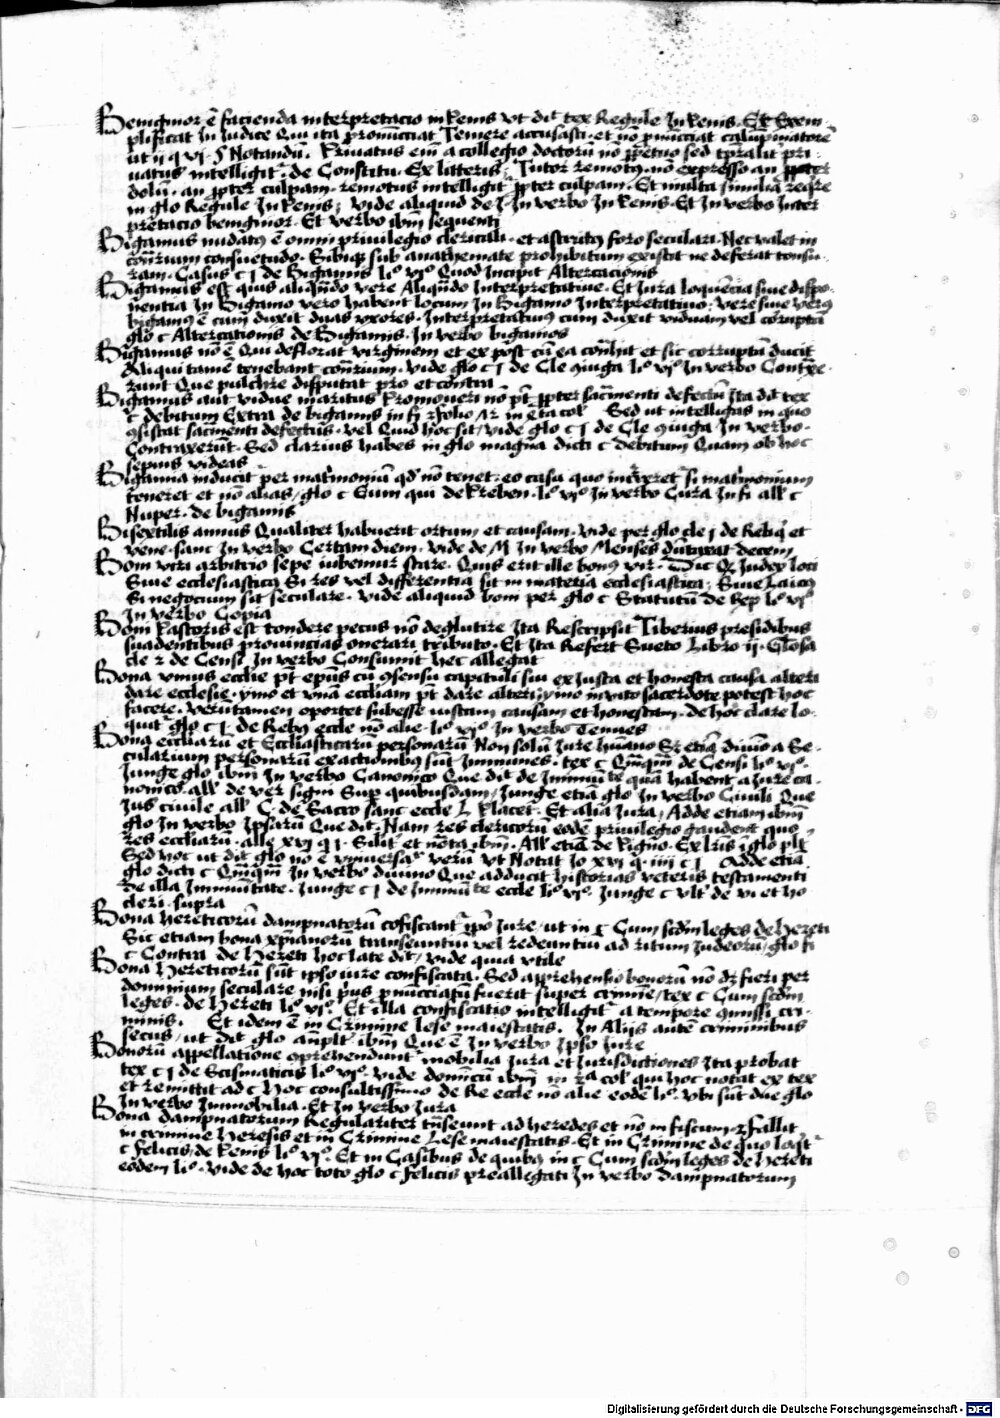 Benignior ē facienda interpretacio in Penis vt dit tex Regule In Penis. Et Exem-
plificat In Iudice Qui ita pronūcciat Temere accusasti et nō pnūcciat calūpniatorē
ut ij q vj § Notandū. Privatus eni a collegio doctorū nō ppetuo sed tpralit pri-
vatus intelligit. de Constitu. Ex litteris. Tutor remotus. nō expresso an ppter
dolū. an ppter culpam. remotus intelligit ppter culpam. Et multa similia reqre
in glo Regule In Penis. vide aliquid de I. In verbo In Penis. Et In verbo Inter
pretacio benignior. Et verbo ibm sequenti
Bigamus nudatꝰ ē omni privilegio clericali. et astrictꝰ foro seculari. Nec valet in
contrium consuetudo. Sibiqꝫ sub anathemate prohibitum existit ne deferat tonsu-
ram. Casus c j de Bigamis li° vj° Quod Incipit Altercacionis
Bigamus est quis aliqñdo vere Aliqñdo Interpretative. Et Iura loquēcia sive dispo-
nentia In Bigamo vero habent locum In Bigamo Interpretativo. vere sive verꝰ
bigamꝰ ē cum duxit duas vxores. Interpretativꝰ cum duxit viduam vel corruptā
glo c Altercationis de Bigamis. In verbo bigamos
Bigamus nō ē Qui deflorat virginem et ex post cū ea cōtrahit et sic corruptā ducit
Aliqui tamē tenebant contrium. vide glo c j de Cle coniuga li° vj° In verbo Contxe-
runt Que pulchre disputat pro et contra
Bigamus aut vidue maritus Promoveri nō pt ppter sacmenti defectū Ita dit tex
c debitum Extra de bigamis in fi Sed ut intelligas in quo
consistat sacmenti defectus. vel Quid hoc sit, vide glo c j de Cle coniuga In verbo.
Contraxerūt. Sed clarius habes in glo magna dicti c debitum Quam ob hoc
sepius videas
Bigamia inducit per matrimoniū qd nō tenet. eo casu quo induxeret si matrimonium
teneret et nō alias, glo c Eum qui de Preben. li° vj° In verbo Cura In fi all c
Nuper. de bigamis
Bisextilis annus Qualiter habuerit ortum et causam. vide per glo cle j de Reliq et
vene. sanc In verbo Certam diem. vide de M In verbo Menses dūtaxat decem
Boni viri arbitrio sepe iubemur stare. Quis erit ille bonꝰ vir. Dic Qꝫ Iudex loci
Sive ecclesiasticꝰ Si res vel differentia sit in materia ecclesiastica. Sive Laicꝰ
Si negocium sit seculare. vide aliquid boni per glo c Statutū de Rep li° vj°
In verbo Copia
Boni Pastoris est tondere pecus nō deglutire Ita Rescripsit Tiberius presidibus
suadentibus provincias onerari tributo. Et Ita Refert Sueto Libro ij. Glosa
cle 2 de Censi In verbo Consumit hec allegat
Bona vnius ecclie pt epus cū consensu capituli sui ex Iusta et honesta causa alteri
dare ecclesie. ymo et vnā eccliam pt dare alteri, ymo invito sacerdote potest hoc
facere. Verūtamen oportet subesse iustam causam et honestam. de hoc clare lo-
quit glo c j. de Rebꝰ eccle nō alie. li° vj° In verbo Tennes
Bona eccliarū et Eccliasticarū personarū Non solū Iure huano Sꝫ etiā divino a Se-
cularium personarū exactionibꝰ sūt Immunes. tex c Qmqm de Censi li° vj°.
Iunge glo ibm In verbo Canonico Que dit de Immuite quā habent a Iure ca-
nonico. all de ver signi Sup quibusdam, Iunge etiā glo In verbo Civili Que
Ius civile all C. de Sacro sanc eccle L Placet. Et alia Iura, Adde etiam ibm
glo In verbo Ipsarū Que dit. Nam res clericorū eodē privilegio gaudent quo
res eccliarū. alle xvj q j. Silut et nota ibm. All etiā de Pigno. Ex lris i glo
Sed hoc ut dit glo nō ē vniversa verū Vt Notat Io xvj q. iiij c j Adde etiā
glo dicti c Qmqm In verbo divino Que adducit historias veteris testamenti
De illa Immunitate. Iunge c j de Immuite eccle li° vj°. Iunge c vlt de vi et ho
cleri. supra
Bona hereticorū dampnatorū cōfiscant ipo Iure, ut in c Cum scdm leges de hereti
Sic etiam bona xpianorū transeuntiū vel redeuntiū ad ritum Iudeorū, glo fi
c Contra de hereti hoc late dit, vide quia vtile
Bona hereticorū sūt ipso iure confiscata. Sed apprehensio bonorū nō dꝫ fieri per
dominium seculare nisi prius pnūcciatū fuerit super crimine, tex c Cum scdm
leges. de hereti li° vj°. Et illa confiscatio intelligit a tempore cōmissi cri-
minis. Et idem ē in Crimine lese maiestatis. In Alijs autē criminibus
secus, ut dit glo ampl ibm Que ē In verbo Ipso Iure
Bonorū appellatione cōprehendunt mobilia Iura et Iurisdictiones Ita probat
tex c j de Scismaticis li° vj°. vide dominicū ibm in 2ª col qui hoc notat ex tex
et remittit ad c Hoc consultissimo de Re eccle nō alie eodē li°. vbi sūt due glo
In verbo Immobilia. Et In verbo Iura
Bona dampnatorum Regulariter trāseunt ad heredes et nō in fiscum. fallit
in crimine heresis et in Crimine Lese maiestatis. Et in Crimine de quo loqt
c felicis, de Penis li° vj°. Et in Casibus de quibꝰ in c Cum scdm leges de hereti
eodem li°. vide de hoc toto glo c felicis preallegati In verbo dampnatorum
Digitalisierung gefördert durch die Deutsche Forschungsgemeinschaft - DFG